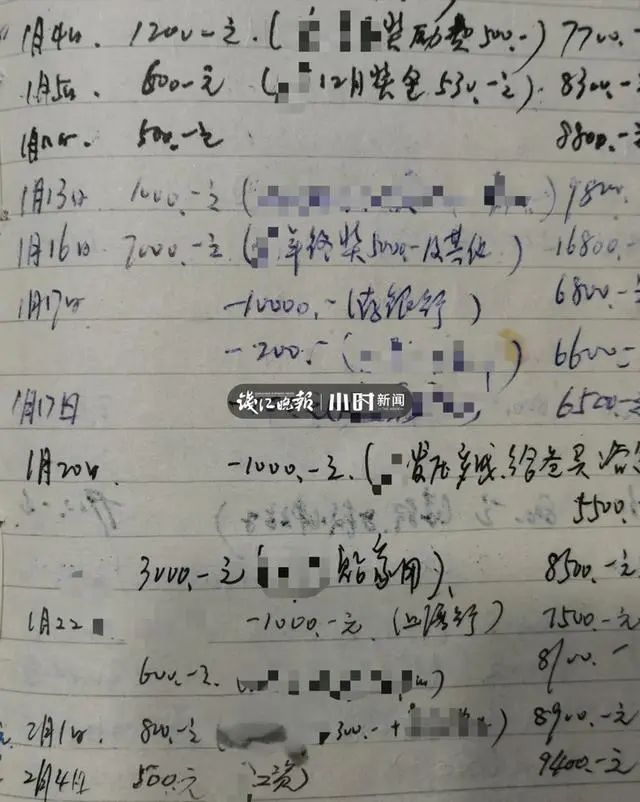 1月4日. 1200-元.(奖励费500.-) 7700.-
1月5日. 600-元 (12月奖金530.-元) 8300.-
500.-元 8800.-元
1月13日 1000.-元 ( ) 9800.-
1月16日 7000.-元 (年终奖5000-及其他) 16800.-
1月17日 -10000.- (存银行) 6800.-
-200.- ( ) 6600-
钱江晚报 小时新闻
1月17日 6500-元
1月20日 -1000.-元.(发压岁钱.给
5500.-
3000.-元 (贴家用) 8500.-元
1月22 -1000.-元 ( 银行) 7500.-元
600.-元. ( ) 8100.-
2月1日. 820.-元 ( 300.-+ ) 8900.-元
2月4日 500.元 工资) 9400.-元